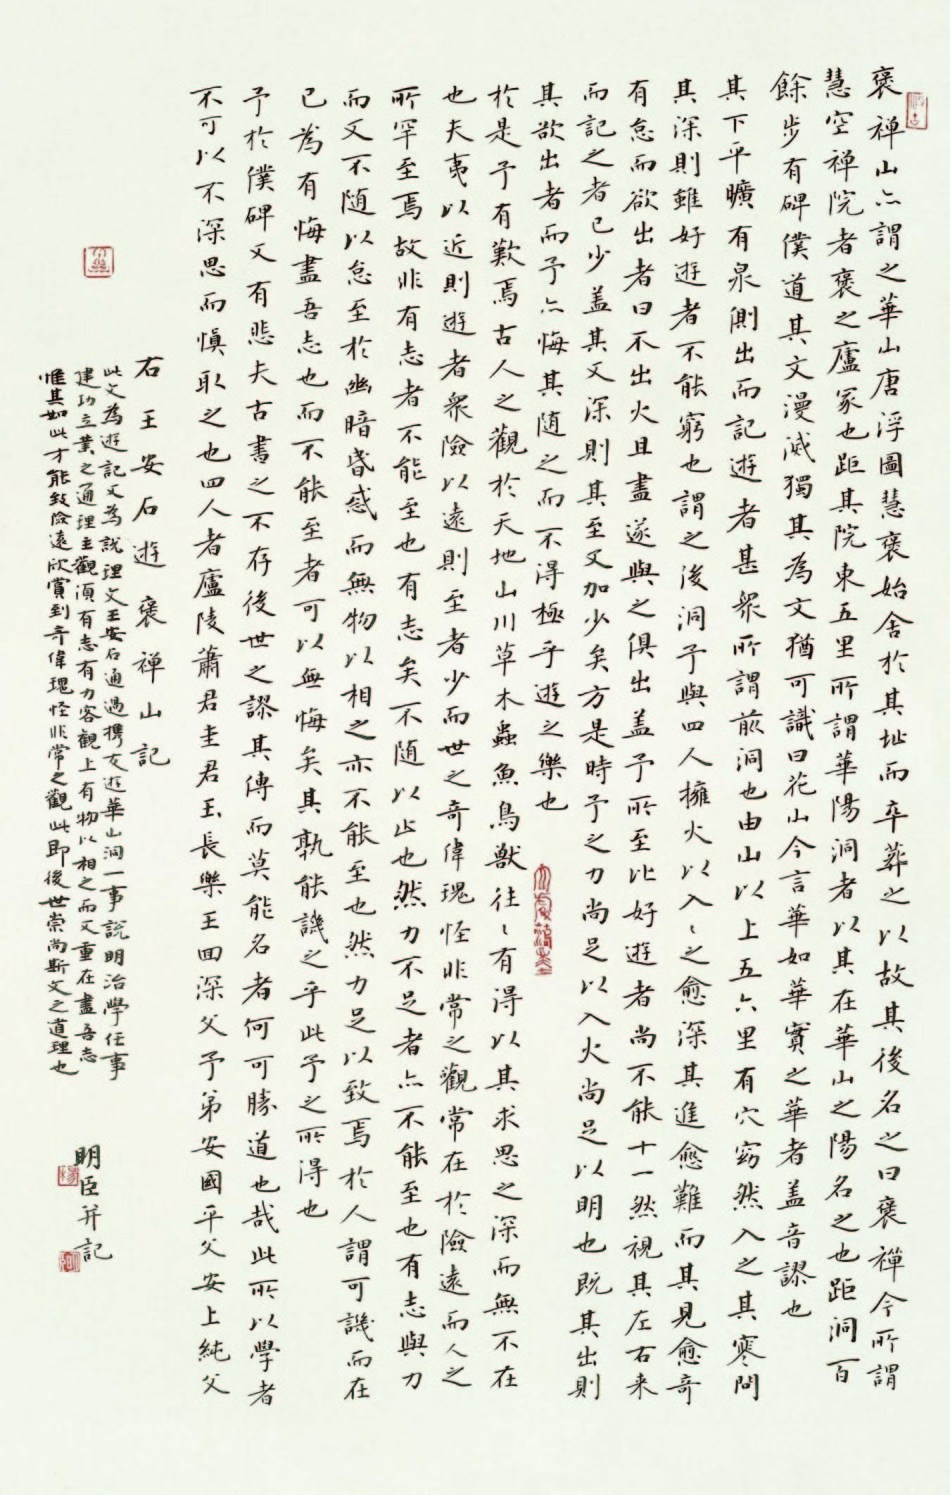 褒禪山亦謂之華山唐浮圖慧褒始舍於其址而卒葬之以故其後名之曰褒禪今所謂
慧空禪院者褒之廬冢也距其院東五里所謂華陽洞者以其在華山之陽名之也距洞百
餘步有碑僕道其文漫滅獨其為文猶可識曰花山今言華如華實之華者蓋音謬也
其下平曠有泉側出而記遊者甚衆所謂前洞也由山以上五六里有穴窈然入之其寒問
其深則雖好遊者不能窮也謂之後洞予與四人擁火以入〻之愈深其進愈難而其見愈奇
有怠而欲出者曰不出火且盡遂與之俱出蓋予所至比好遊者尚不能十一然視其左右来
而記之者已少蓋其又深則其至又加少矣方是時予之力尚足以入火尚足以明也既其出則
其欲出者而予亦悔其随之而不得極乎遊之樂也
於是予有歎焉古人之觀於天地山川草木蟲魚鳥獸往〻有得以其求思之深而無不在
也夫夷以近則遊者衆險以遠則至者少而世之奇偉瑰怪非常之觀常在於險遠而人之
所罕至焉故非有志者不能至也有志矣不随以止也然力不足者亦不能至也有志與力
而又不随以怠至於幽暗昏惑而無物以相之亦不能至也然力足以致焉於人謂可譏而在
已為有悔盡吾志也而不能至者可以無悔矣其孰能譏之乎此予之所得也
予於僕碑又有悲夫古書之不存後世之謬其傳而莫能名者何可勝道也哉此所以學者
不可以不深思而慎取之也四人者廬陵蕭君圭君玉長樂王回深父予弟安國平父安上純父
右王安石遊褒禅山記
此文為遊記又為說理文王安石通過攜友遊華山洞一事說明治學任事
建功立業之通理主觀須有志有力客觀上有物以相之而又重在盡吾志
惟其如此才能致險遠欣賞到奇偉瑰怪非常之觀此即後世崇尚斯文之道理也
明臣并記